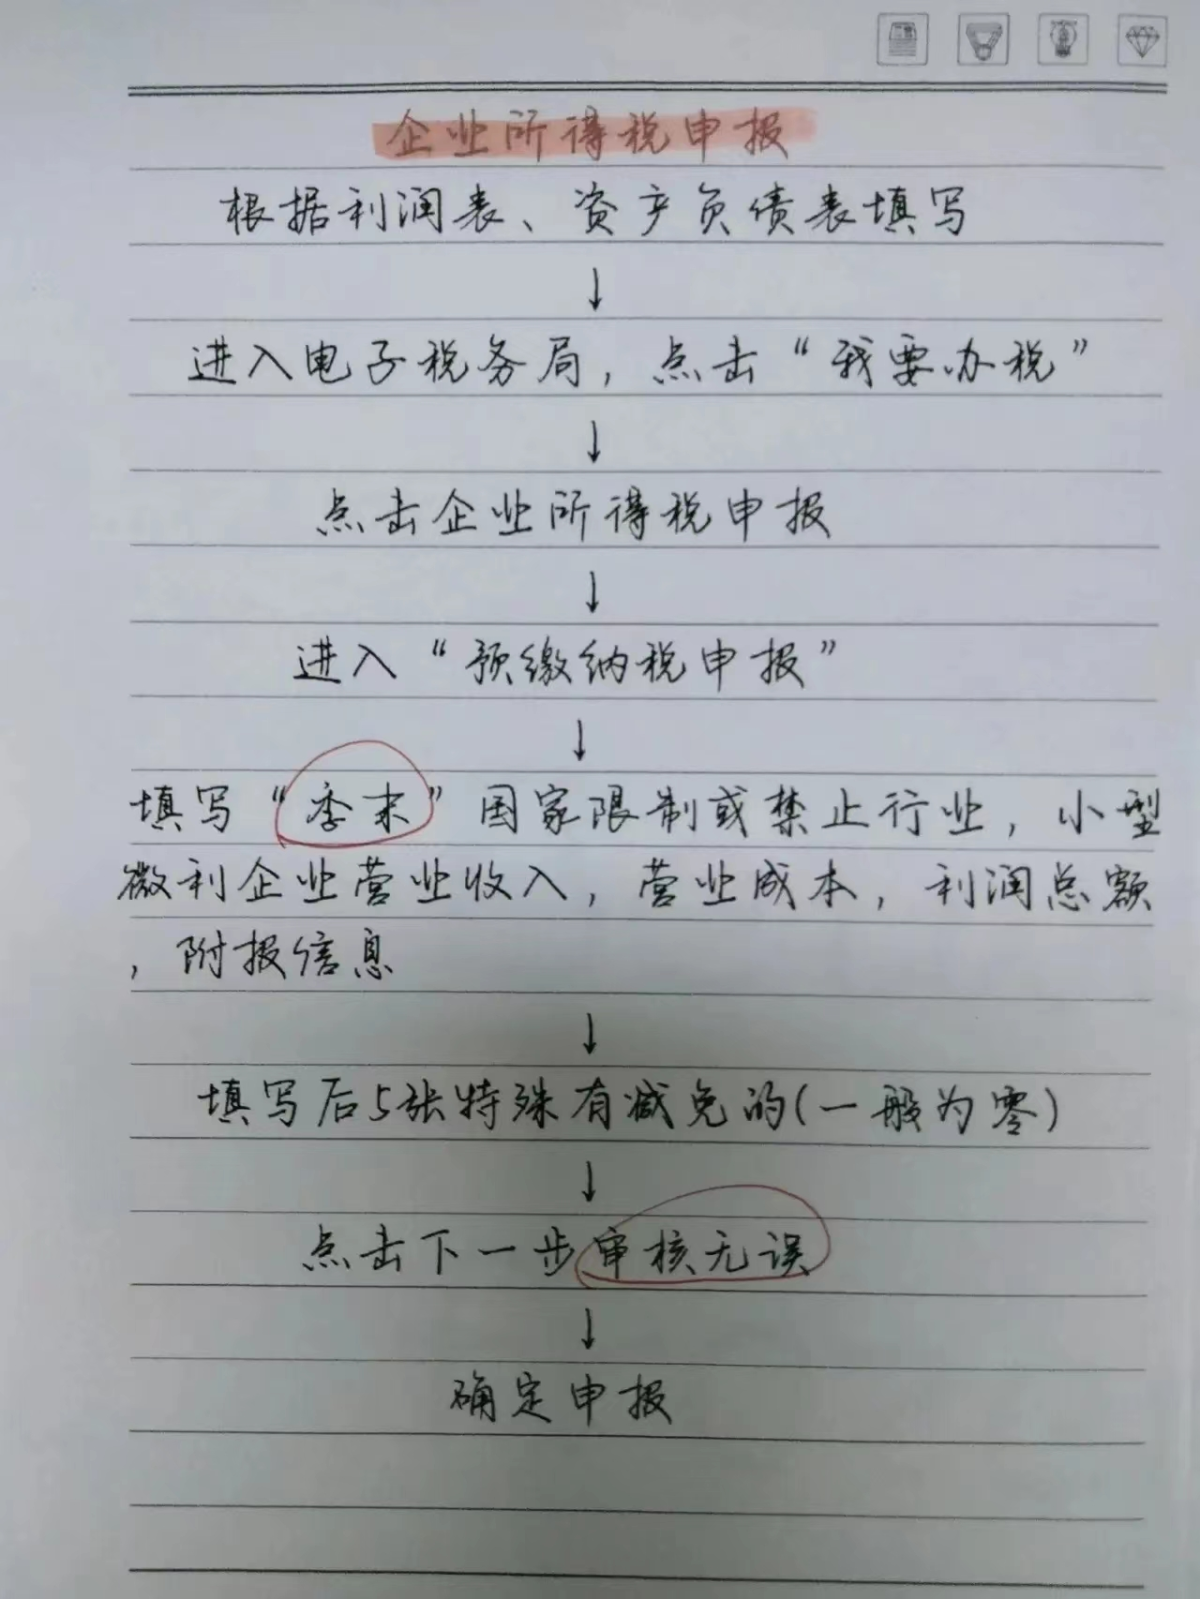 企业所得税申报
根据利润表、资产负债表填写
↓
进入电子税务局，点击“我要办税”
↓
点击企业所得税申报
↓
进入“预缴纳税申报”
↓
填写“季末”国家限制或禁止行业，小型
微利企业营业收入，营业成本，利润总额
，附报信息
↓
填写后5张特殊有减免的(一般为零)
↓
点击下一步审核无误
↓
确定申报